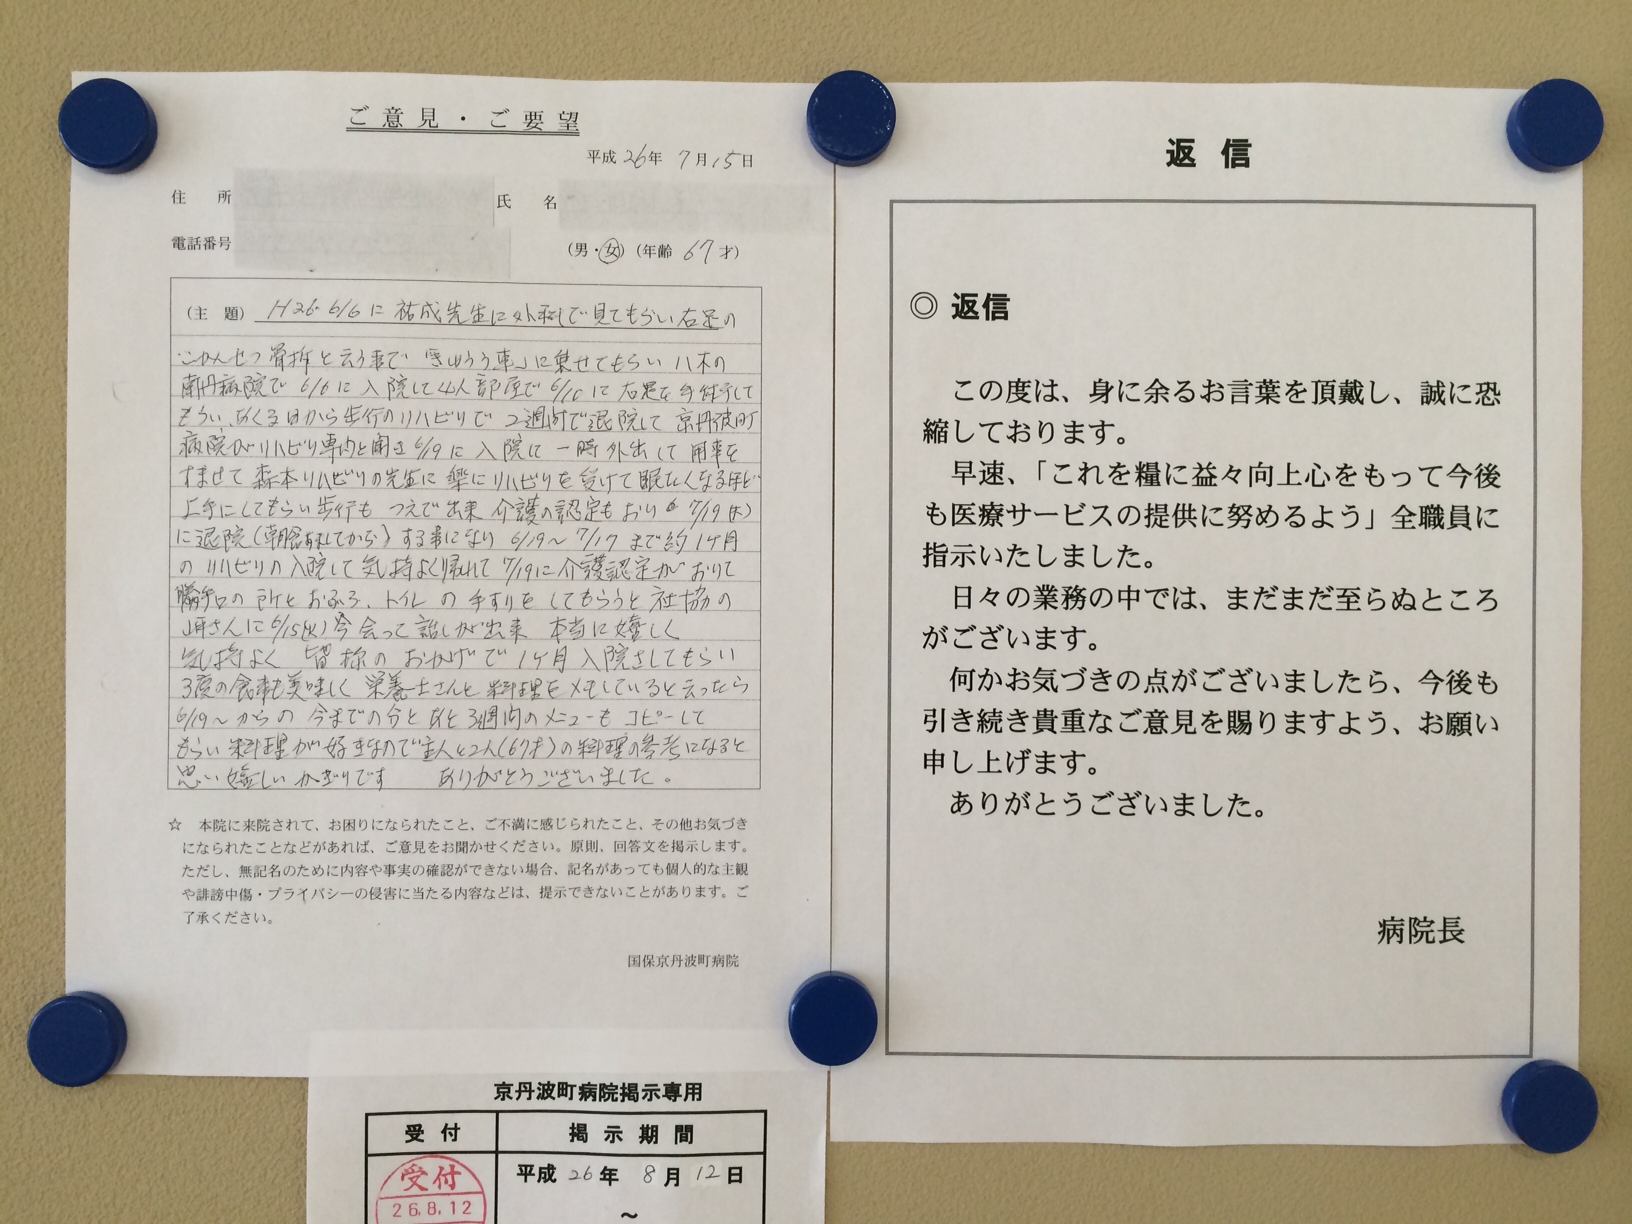 ご意見・ご要望
平成26年 7月15日
住 所 氏 名
電話番号 (男・女) (年齢 67才)
(主 題) H26.6/6に 祐成先生に外科で見てもらい右足の
こかんせつ骨折と云う事で「きゅうきゅう車」に乗せてもらい 八木の
南丹病院で 6/6に入院して4人部屋で 6/10に右足を手術して
もらい、あくる日から歩行のリハビリで 2週間で退院して 京丹波町
病院がリハビリ専門と聞き 6/19に入院に 一時外出して用事を
すませて 森本リハビリの先生に 楽にリハビリを受けて眠たくなるほど
上手にしてもらい歩行も つえで出来 介護の認定もおり
に退院(朝食をしてから)する事になり 6/19〜7/17まで約1ヶ月
のリハビリの入院して気持よく帰れて 7/19に介護認定がおりて
勝手口の所とおふろ、トイレの手すりをしてもらうと社協の
さんに 6/15(火)今会って話しが出来 本当に嬉しく
気持よく 皆様のおかげで1ヶ月入院させてもらい
3度の食事も美味しく 栄養士さんと料理をメモしていると云ったら
6/19〜からの今までの分とあと3週間のメニューもコピーして
もらい料理が好きなので主人と2人(67才)の料理の参考になると
思い嬉しいかぎりです ありがとうございました。
☆ 本院に来院されて、お困りになられたこと、ご不満に感じられたこと、その他お気づき
になられたことなどがあれば、ご意見をお聞かせください。原則、回答文を掲示します。
ただし、無記名のために内容や事実の確認ができない場合、記名があっても個人的な主観
や誹謗中傷・プライバシーの侵害に当たる内容などは、提示できないことがあります。ご
了承ください。
国保京丹波町病院
京丹波町病院掲示専用
受付 掲示期間
受付
26.8.12
平成26年 8月12日
〜
返信
◎ 返信
この度は、身に余るお言葉を頂戴し、誠に恐
縮しております。
早速、「これを糧に益々向上心をもって今後
も医療サービスの提供に努めるよう」全職員に
指示いたしました。
日々の業務の中では、まだまだ至らぬところ
がございます。
何かお気づきの点がございましたら、今後も
引き続き貴重なご意見を賜りますよう、お願い
申し上げます。
ありがとうございました。
病院長